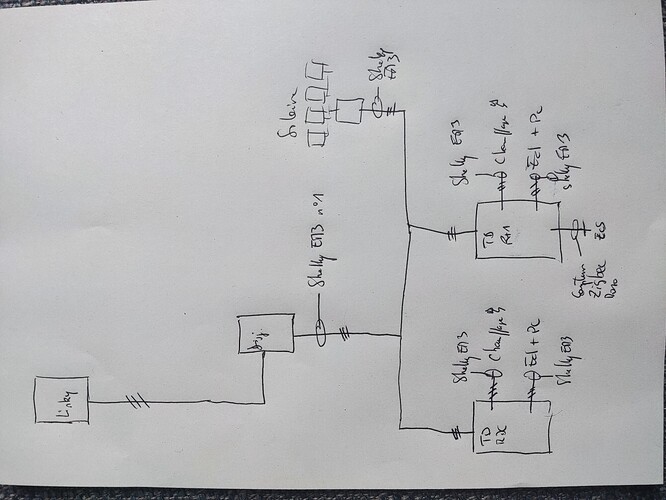 Linky
Disj.
Shelly EM3 n°1
Solaire
Shelly
EM3
TD
R+1
Shelly EM3
Chauffage
Ecl + Pc
Shelly EM3
ECS
Zigbee
TD
RDC
Shelly EM3
Chauffage
Ecl + PC
Shelly EM3